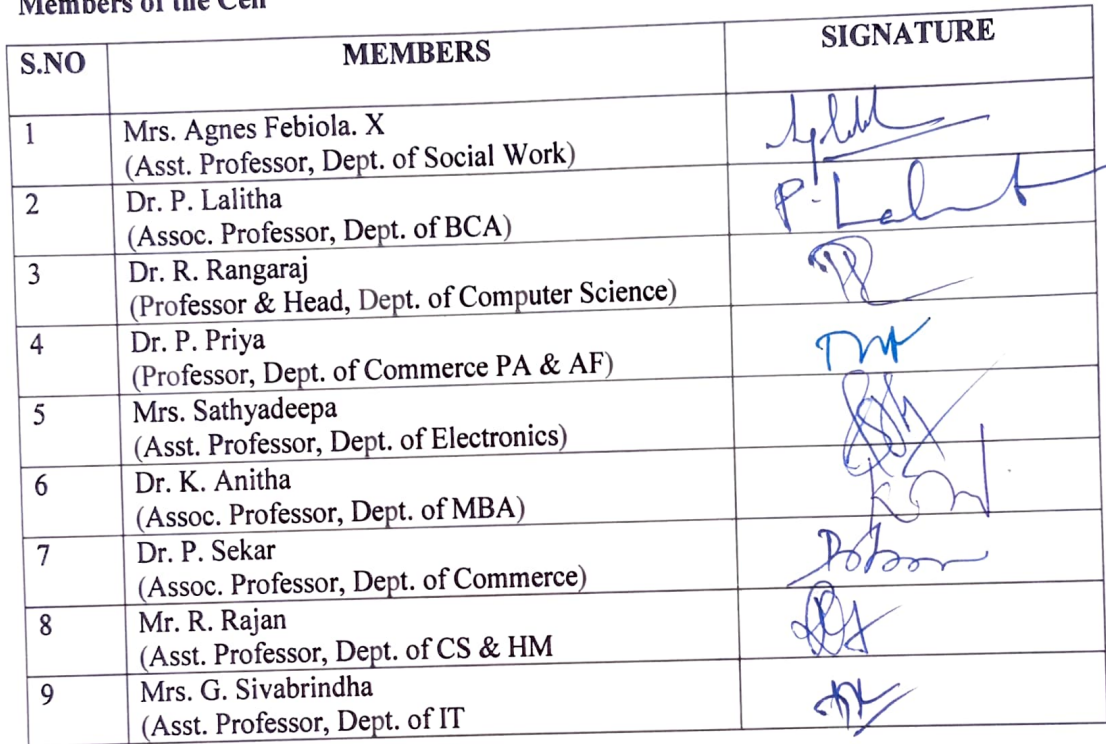 Members of the Cell
S.NO MEMBERS SIGNATURE
1 Mrs. Agnes Febiola. X
(Asst. Professor, Dept. of Social Work)
2 Dr. P. Lalitha
(Assoc. Professor, Dept. of BCA)
3 Dr. R. Rangaraj
(Professor & Head, Dept. of Computer Science)
4 Dr. P. Priya
(Professor, Dept. of Commerce PA & AF)
5 Mrs. Sathyadeepa
(Asst. Professor, Dept. of Electronics)
6 Dr. K. Anitha
(Assoc. Professor, Dept. of MBA)
7 Dr. P. Sekar
(Assoc. Professor, Dept. of Commerce)
8 Mr. R. Rajan
(Asst. Professor, Dept. of CS & HM
9 Mrs. G. Sivabrindha
(Asst. Professor, Dept. of IT